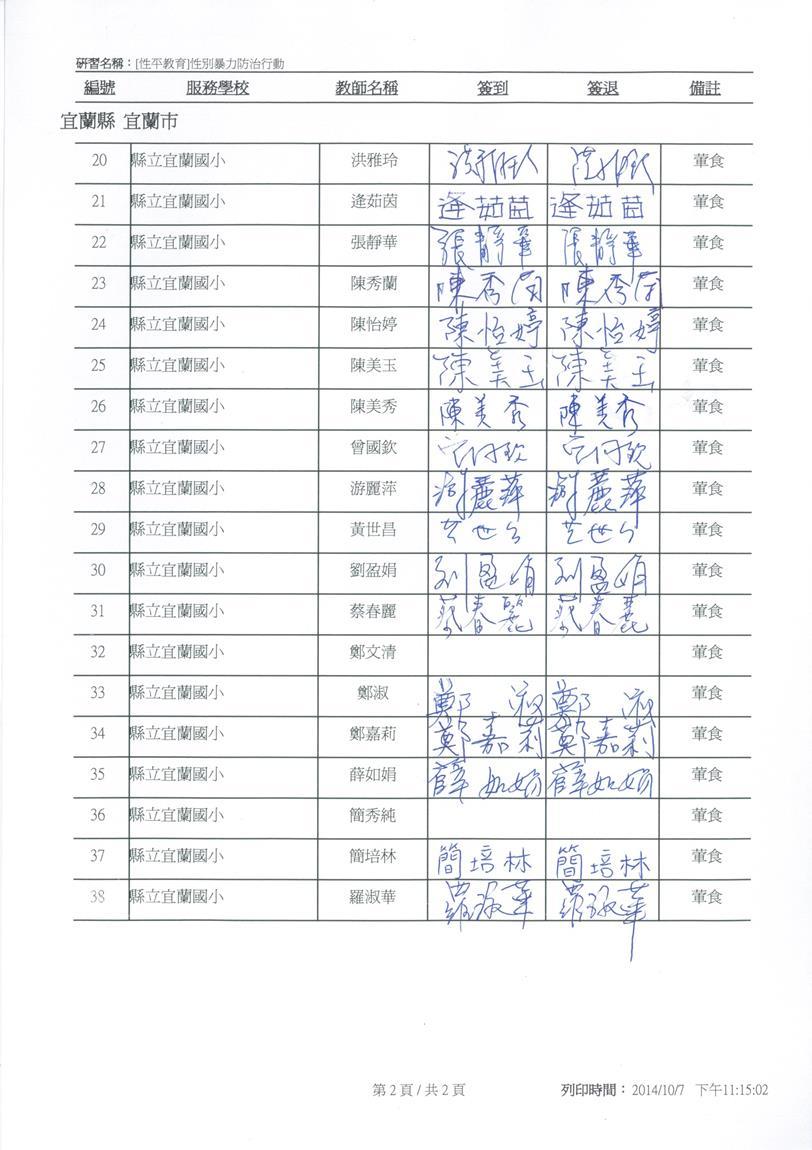 研習名稱：[性平教育]性別暴力防治行動
編號 服務學校 教師名稱 簽到 簽退 備註
宜蘭縣 宜蘭市
20 縣立宜蘭國小 洪雅玲 葷食
21 縣立宜蘭國小 逄茹茵 逄茹茵 逄茹茵 葷食
22 縣立宜蘭國小 張靜華 張靜華 張靜華 葷食
23 縣立宜蘭國小 陳秀蘭 陳秀 陳秀 葷食
24 縣立宜蘭國小 陳怡婷 陳怡婷 陳怡婷 葷食
25 縣立宜蘭國小 陳美玉 陳美玉 陳美玉 葷食
26 縣立宜蘭國小 陳美秀 陳美秀 陳美秀 葷食
27 縣立宜蘭國小 曾國欽 葷食
28 縣立宜蘭國小 游麗萍 游麗萍 游麗萍 葷食
29 縣立宜蘭國小 黃世昌 葷食
30 縣立宜蘭國小 劉盈娟 刘盈娟 刘盈娟 葷食
31 縣立宜蘭國小 蔡春麗 蔡春麗 蔡春麗 葷食
32 縣立宜蘭國小 鄭文清 葷食
33 縣立宜蘭國小 鄭淑 鄭 淑 鄭 淑 葷食
34 縣立宜蘭國小 鄭嘉莉 鄭嘉莉 鄭嘉莉 葷食
35 縣立宜蘭國小 薛如娟 薛如娟 薛如娟 葷食
36 縣立宜蘭國小 簡秀純 葷食
37 縣立宜蘭國小 簡培林 簡培林 簡培林 葷食
38 縣立宜蘭國小 羅淑華 羅淑華 羅淑華 葷食
第 2 頁 / 共 2 頁 列印時間： 2014/10/7 下午11:15:02